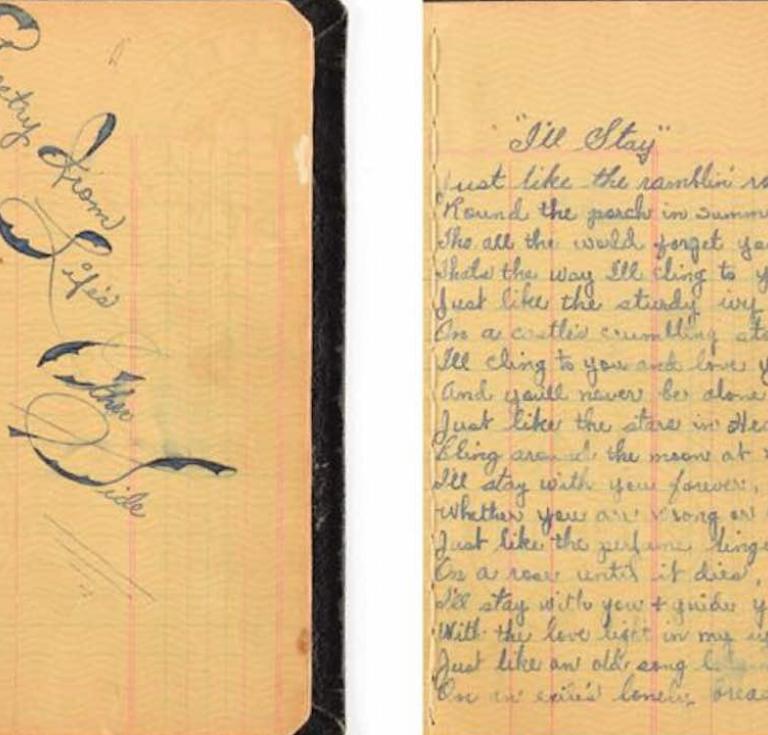 From
Life's
Other
Side
"I'll Stay"
Just like the ramblin'
'Round the porch in summ
Tho all the world forget yo
Thats the way I'll cling to y
Just like the sturdy ivy
On a castle's crumbling sto
I'll cling to you and love y
And you'll never be alone
Just like the stars in Hea
Cling around the moon at
I'll stay with you forever,
Whether you are wrong or
Just like the perfume linge
On a rose until it dies,
I'll stay with you + guide y
With the love light in my ey
Just like an old song
On an exile's lonely brea